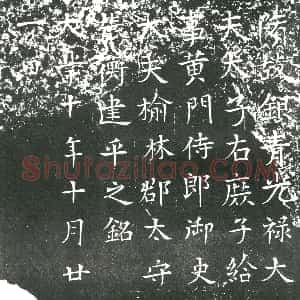 隋故銀青光禄大
夫太子右庶子給
事黄門侍郎御史
大夫榆林郡太守
衡建平之銘
大業十年十月廿
一
Shufaziliao.COM